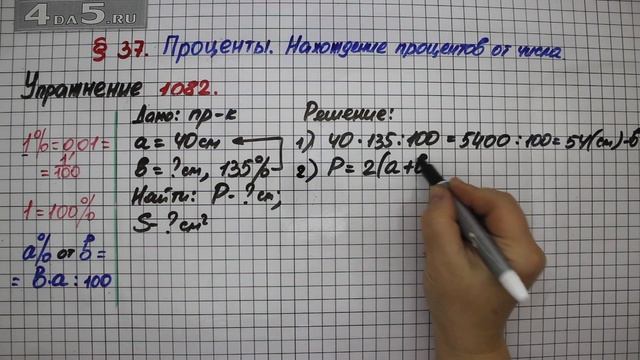 4DA5.RU
§ 37. Проценты. Нахождение процентов от числа.
Упражнение 1082.
1%=0,01=
=1/100
1=100%
a% от b=
=b·a:100
Дано: пр-к
a=40см
b=?см, 135%
Найти: P-?см;
S-?см²
Решение:
1) 40·135:100=5400:100=54(см)-b
2) P=2(a+b